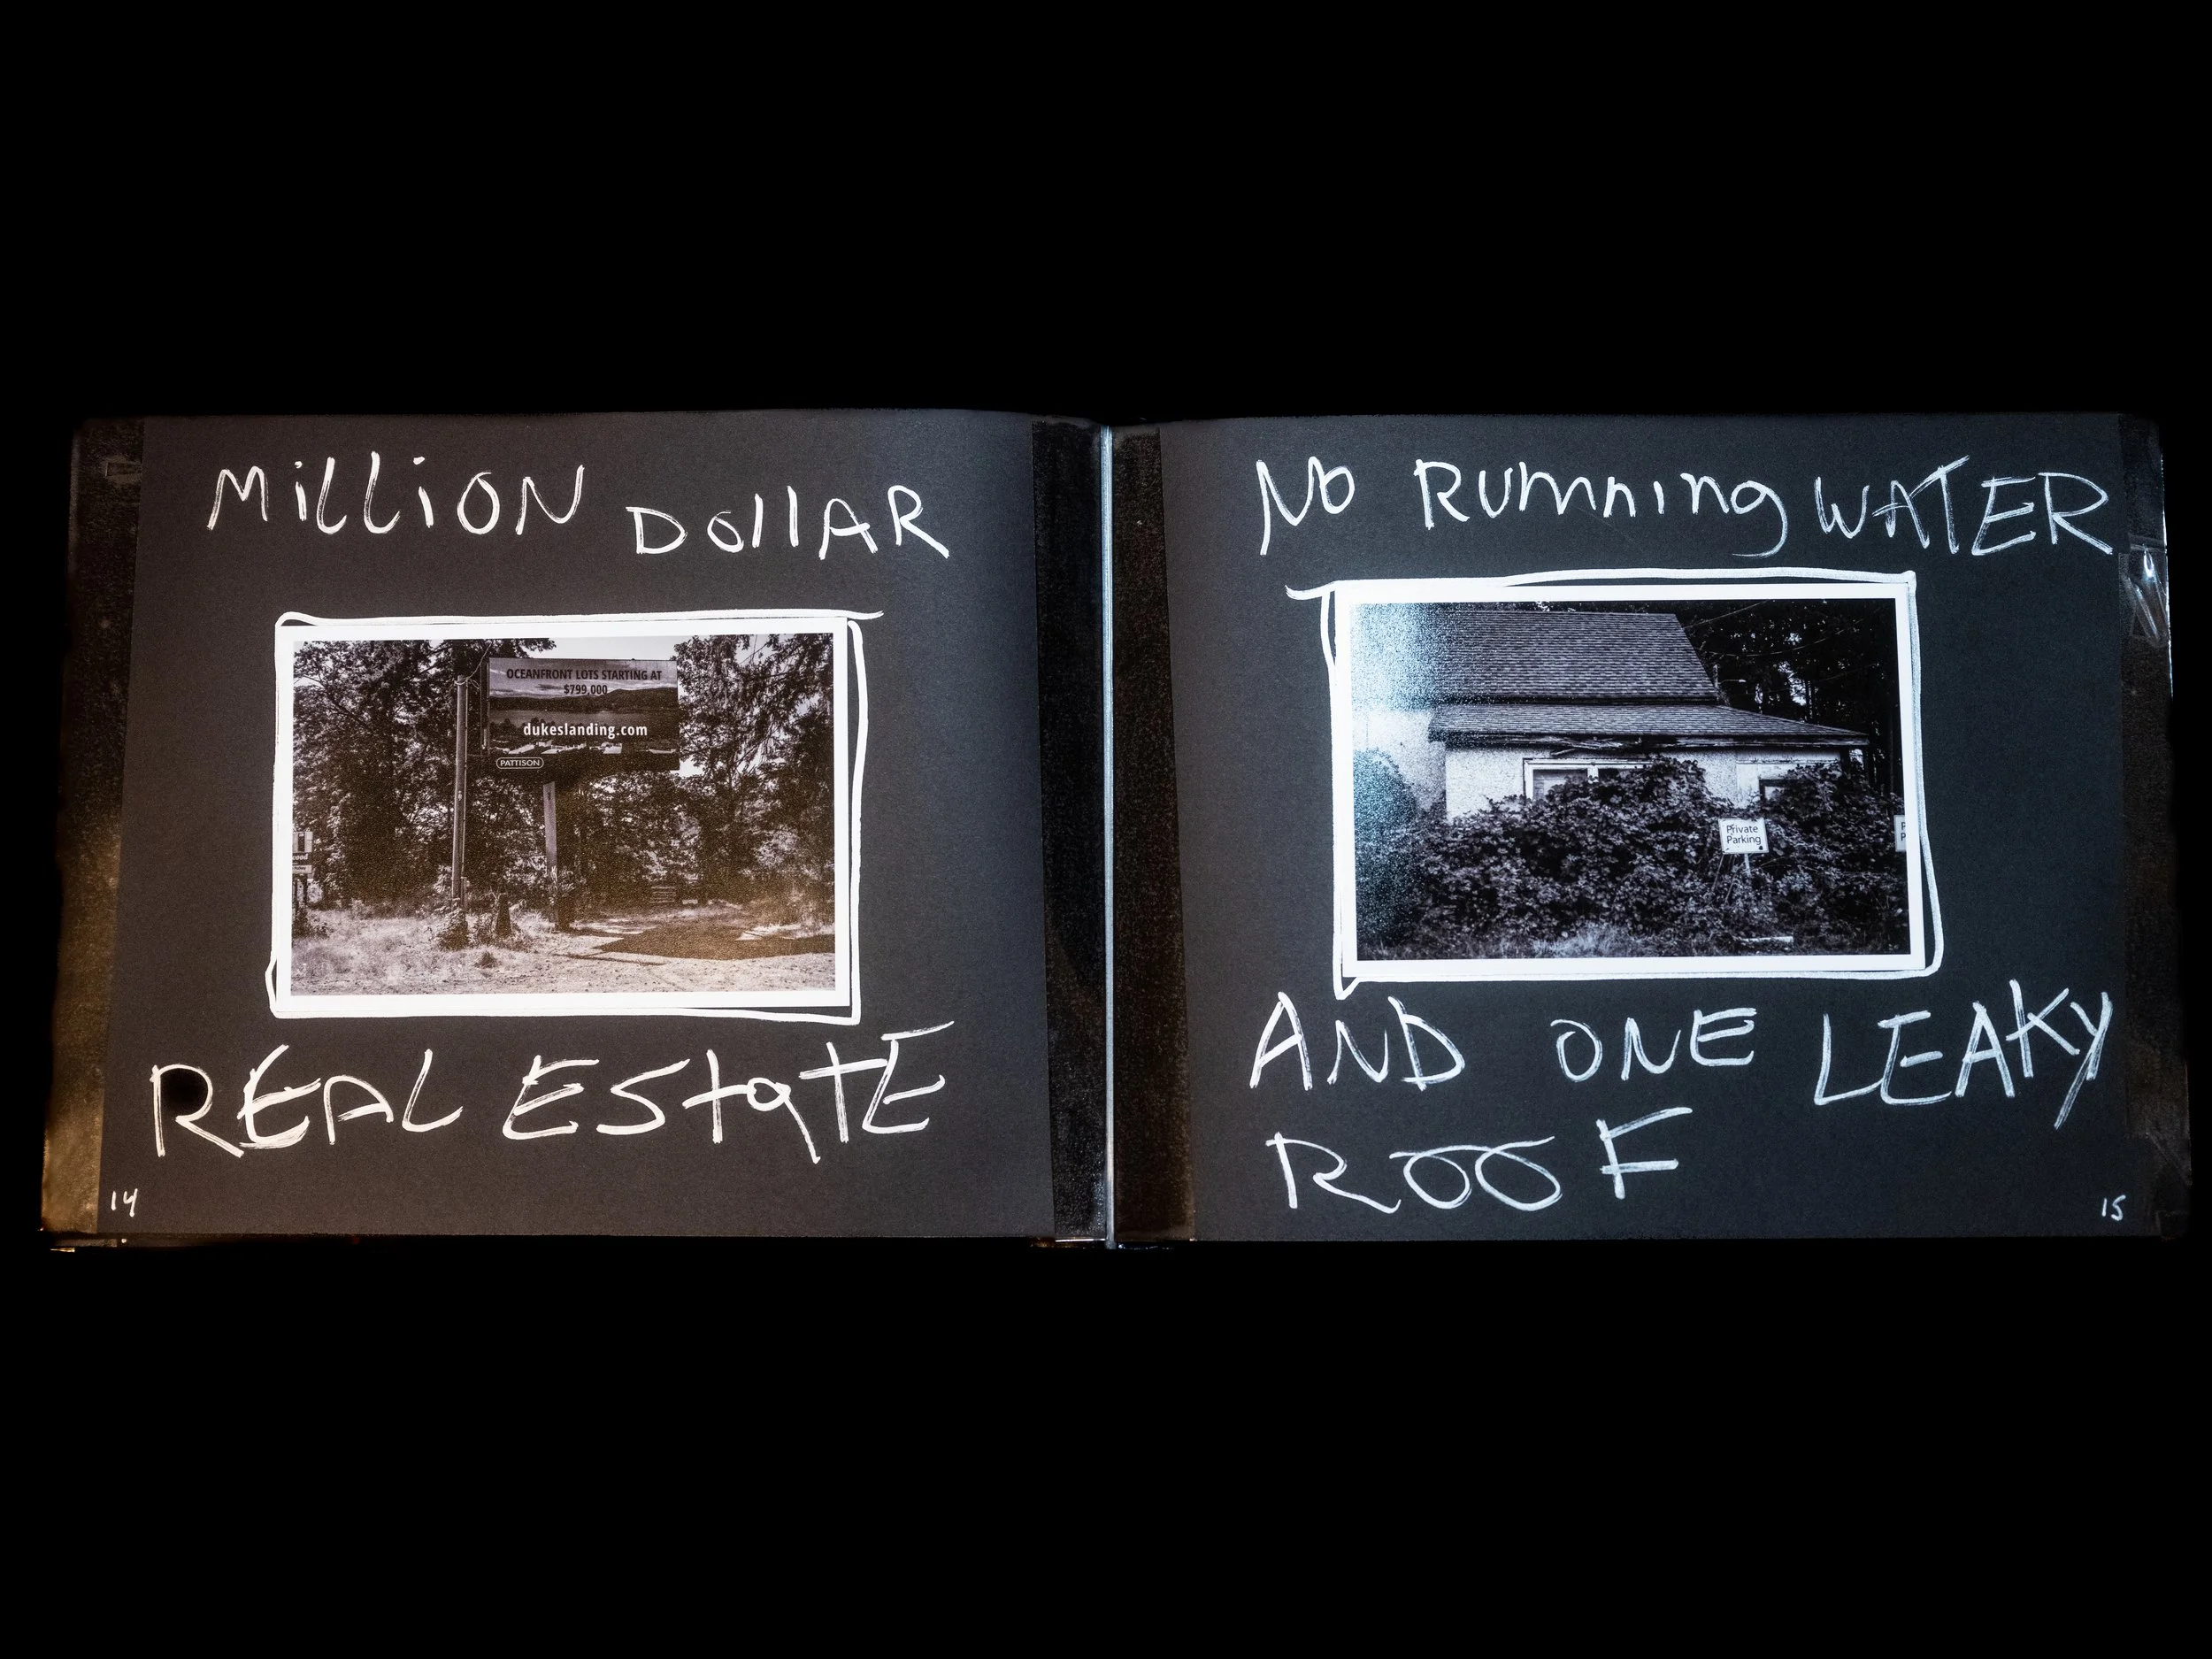 MILLION DOLLAR
OCEANFRONT LOTS STARTING AT
$799,000
dukeslanding.com
PATTISON
REAL ESTATE
14
NO RUNNING WATER
Private
Parking
AND ONE LEAKY
ROOF
15